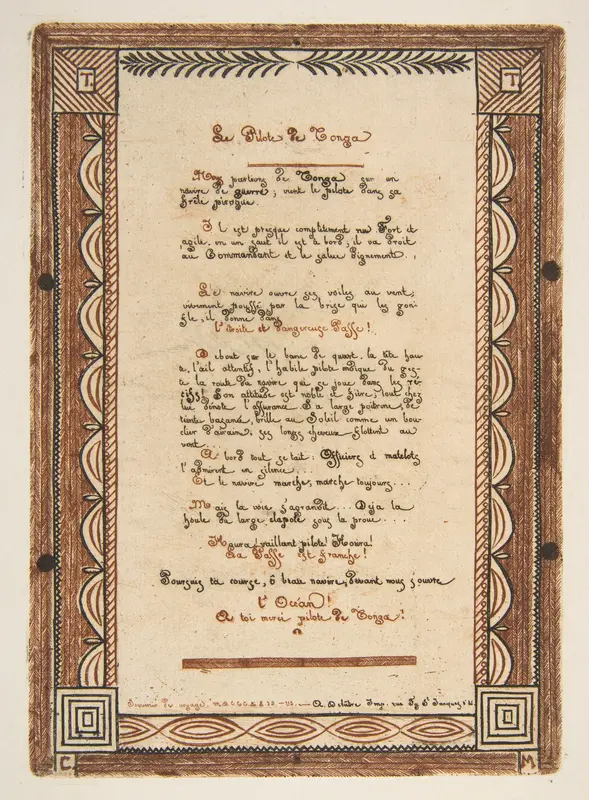 T. T.
Le Pilote de Tonga
Nous partions de Tonga sur un
navire de guerre; vient le pilote dans sa
frêle pirogue.
Il est presque complètement nu Fort et
agile, en un saut il est à bord; il va droit
au Commandant et le salue dignement.
Le navire ouvre ses voiles au vent;
vivement poussé par la brise qui les gon-
fle, il donne dans
l'étroite et dangereuse Passe!
Debout sur le banc de quart, la tête hau-
te, l'œil attentif, l'habile pilote indique du ges-
te la route du navire qui se joue dans les ré-
cifs! Son attitude est noble et fière; tout chez
lui dénote l'assurance. Sa large poitrine, de
teinte basanée, brille au Soleil comme un bou-
clier d'airain; ses longs cheveux flottent au
vent...
A bord tout se tait: Officiers et matelots
l'admirent en silence...
Et le navire marche, marche toujours...
Mais la voie s'agrandit... Déja la
houle du large clapote sous la proue....
Houra! vaillant pilote! Houra!
La Passe est franche!
Poursuis ta course, ô beau navire, devant nous s'ouvre
l'Océan!
A toi merci pilote de Tonga!
Souvenir de voyage. — A. Delâtre Imp. rue Fg St Jacques
C. M